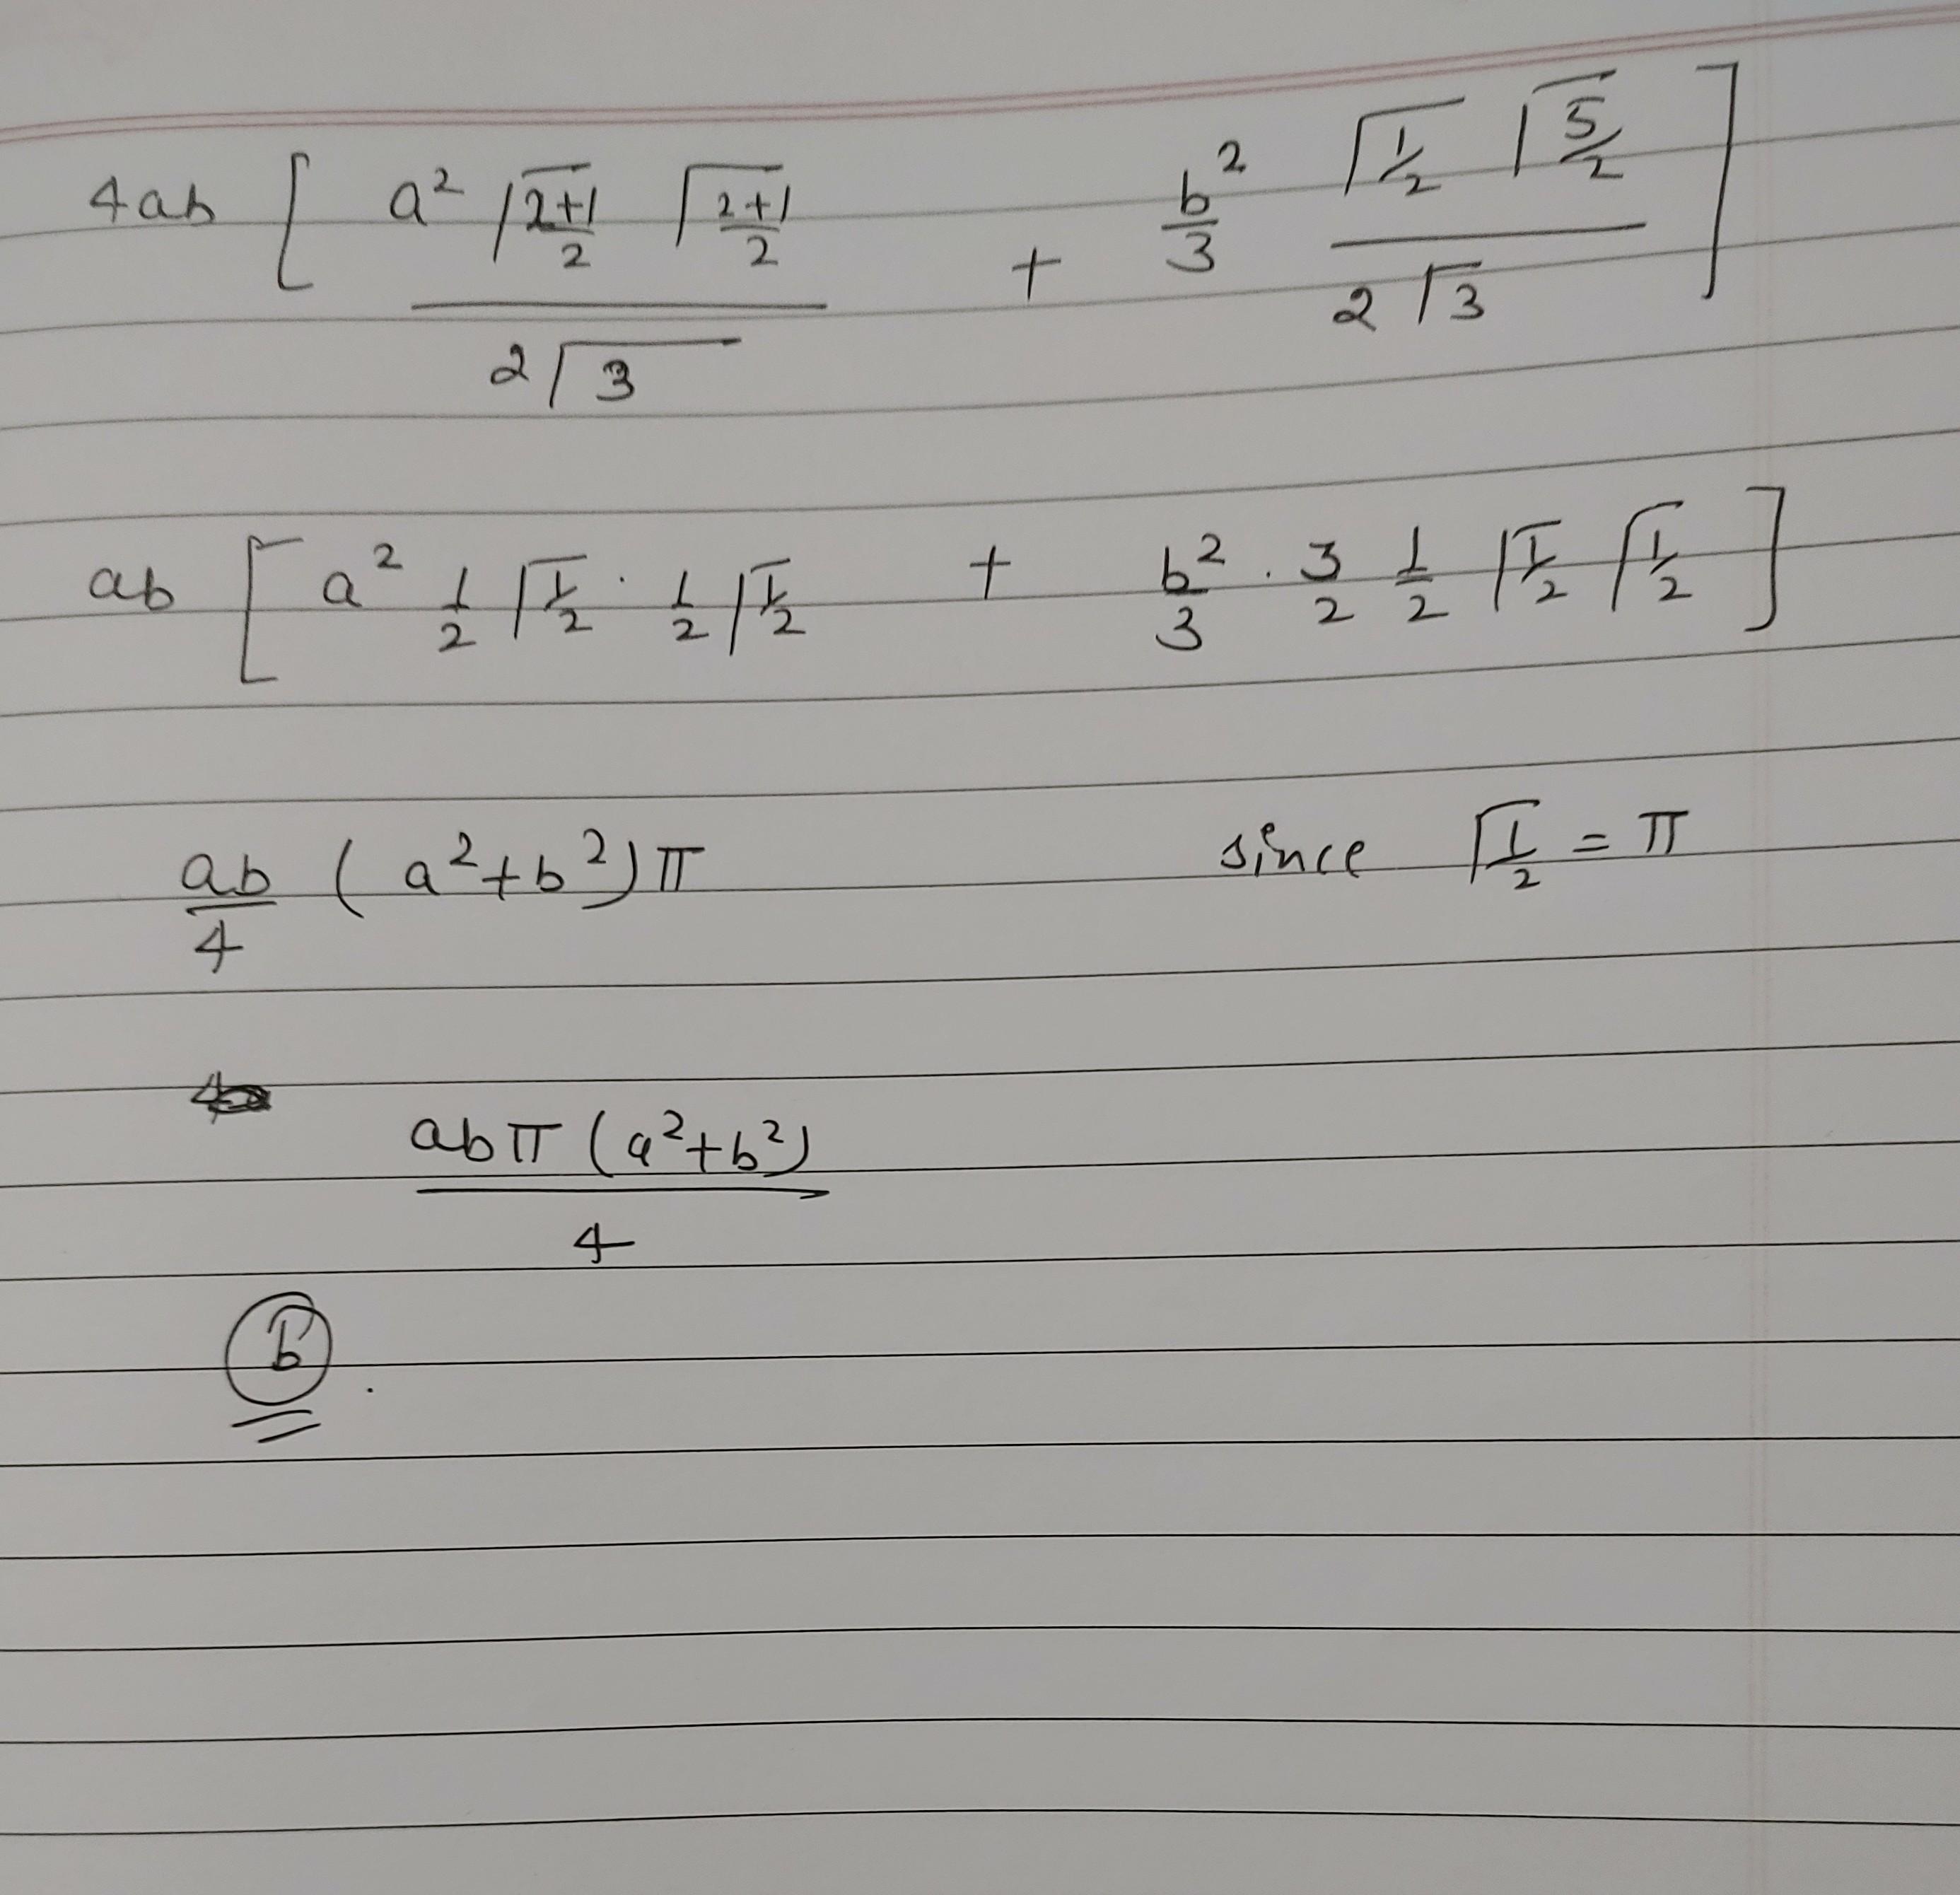 4ab [ a² √(2+1)/2 √(2+1)/2 / 2√3 + b²/3 √1/2 √5/2 / 2√3 ]
ab [ a² 1/2 √1/2 · 1/2 √1/2 + b²/3 · 3/2 1/2 √1/2 √1/2 ]
ab/4 ( a²+b² ) π since √1/2 = π
abπ (a²+b²) / 4
b .